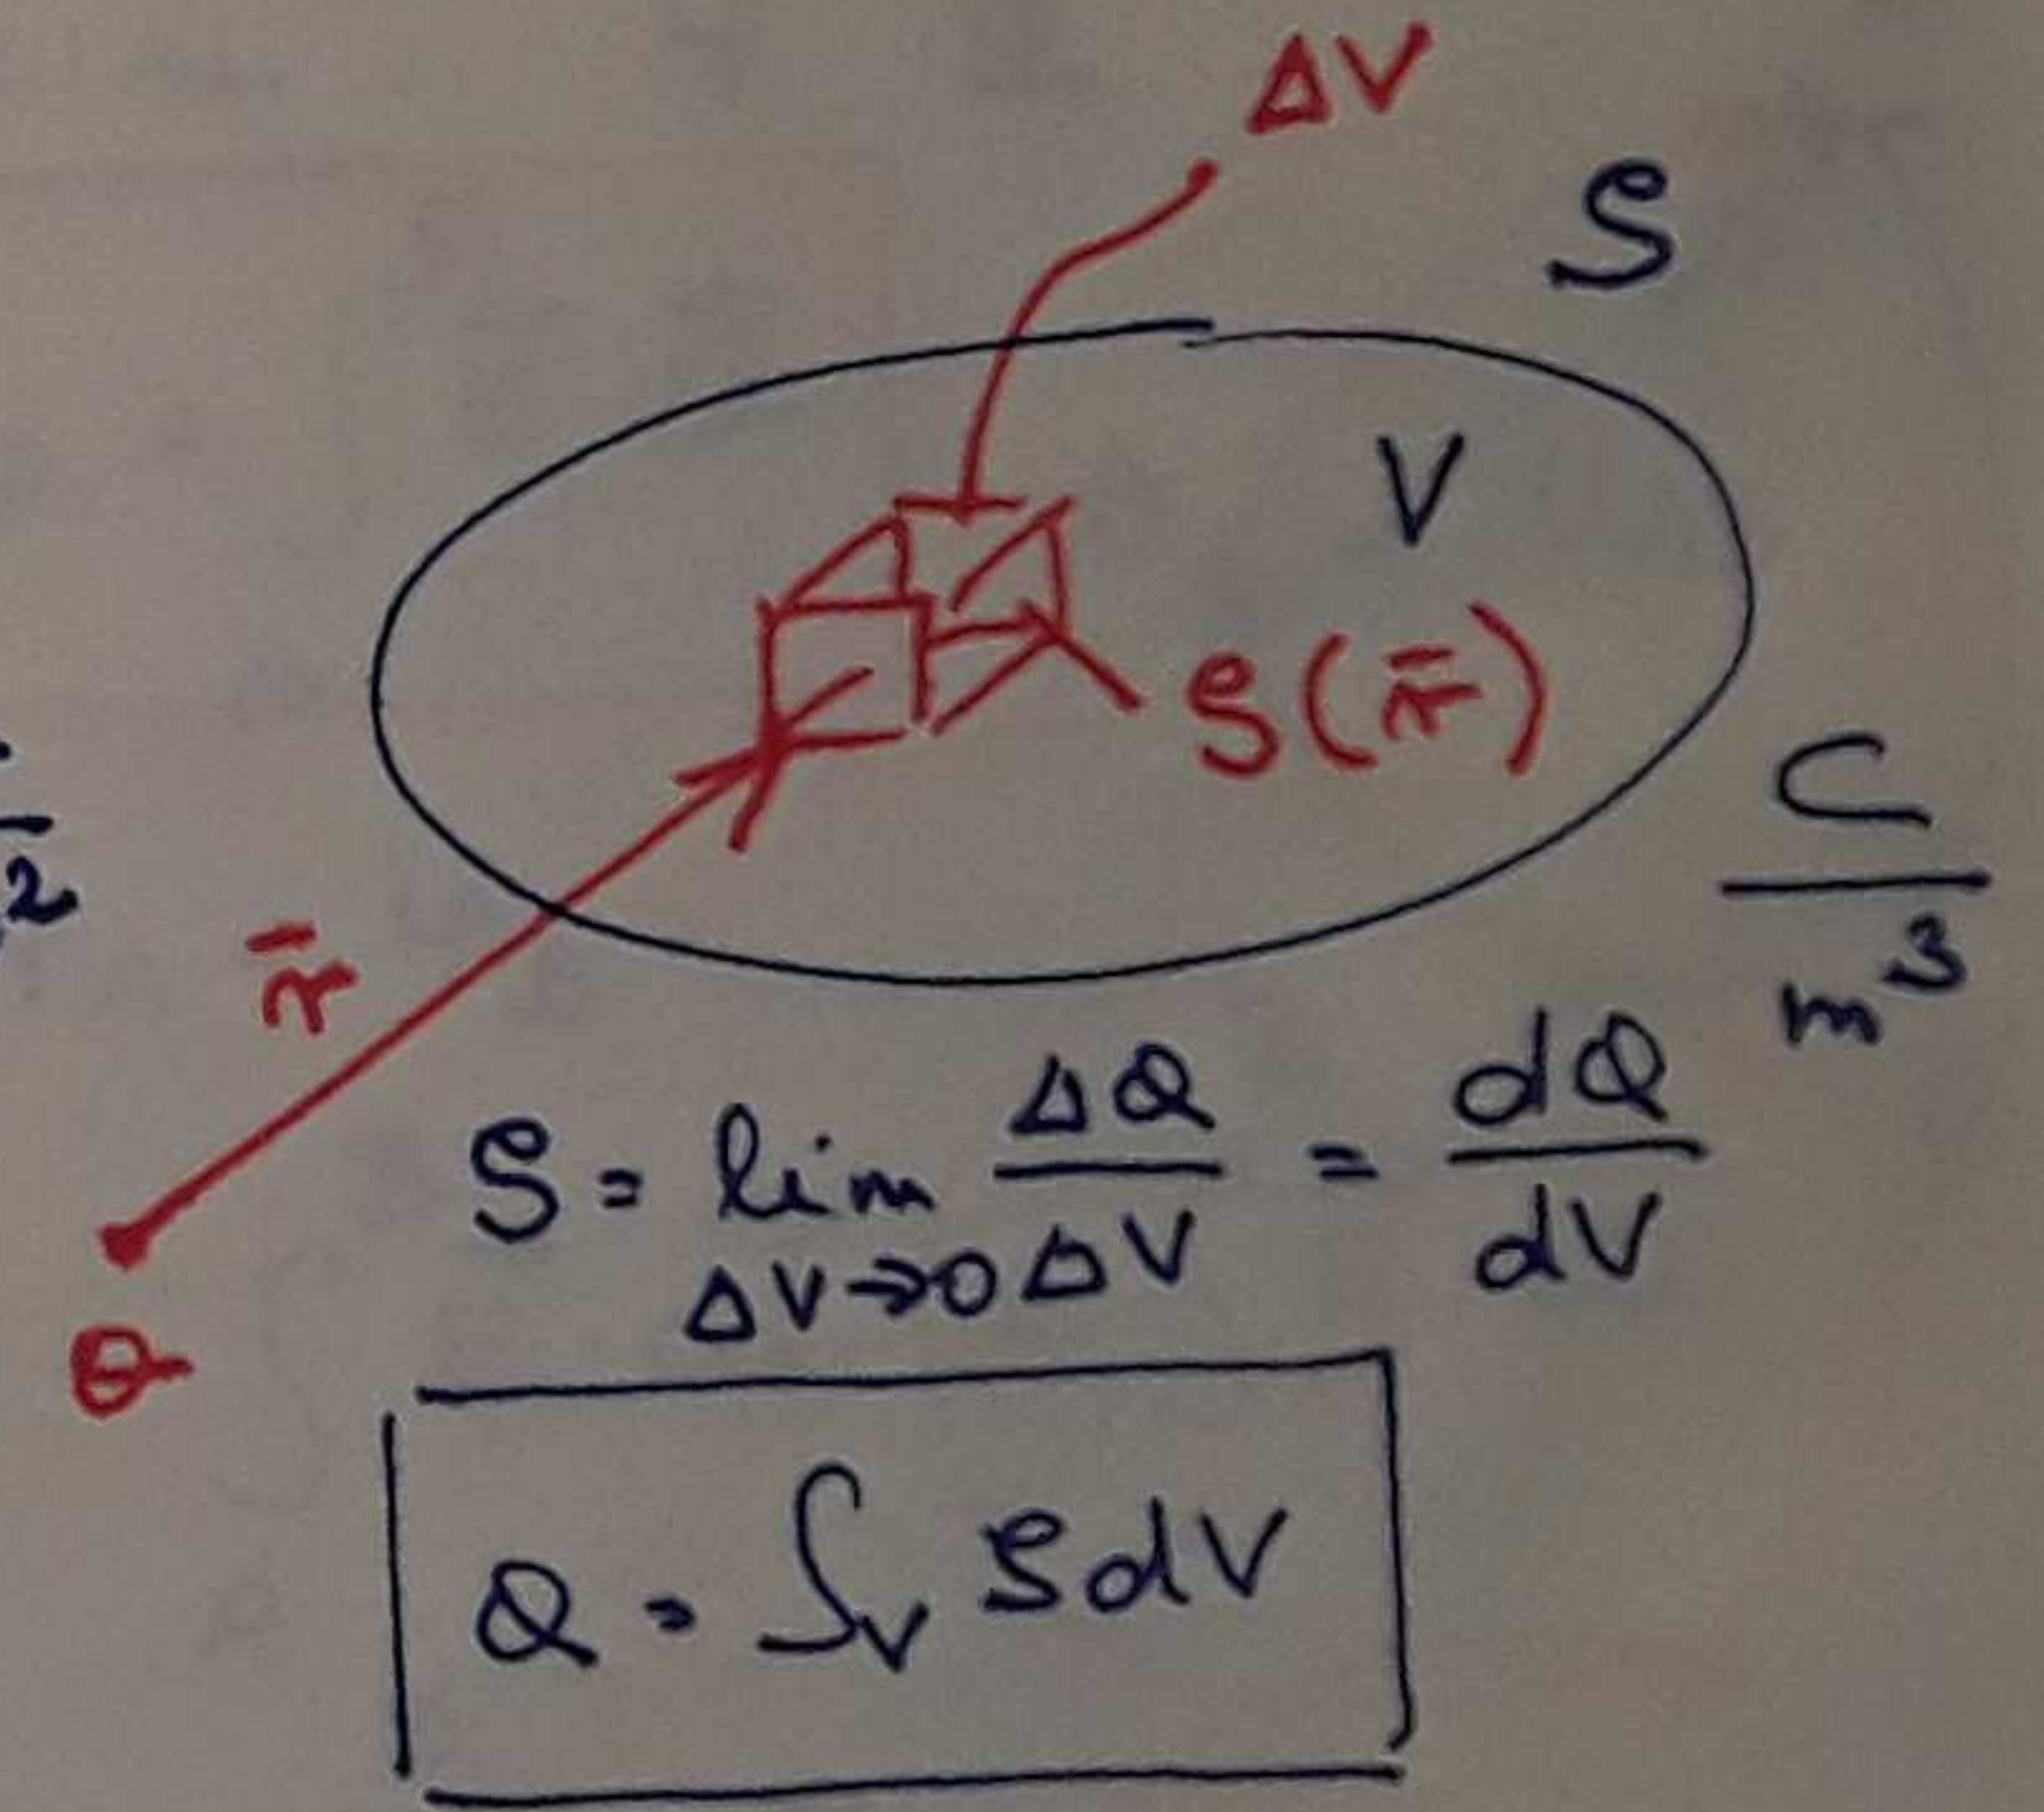 ΔV
ρ
V
ρ(r̄)
C/m³
2
r̄
ρ = lim ΔV→0 ΔQ/ΔV = dQ/dV
O
Q = ∫_V ρ dV